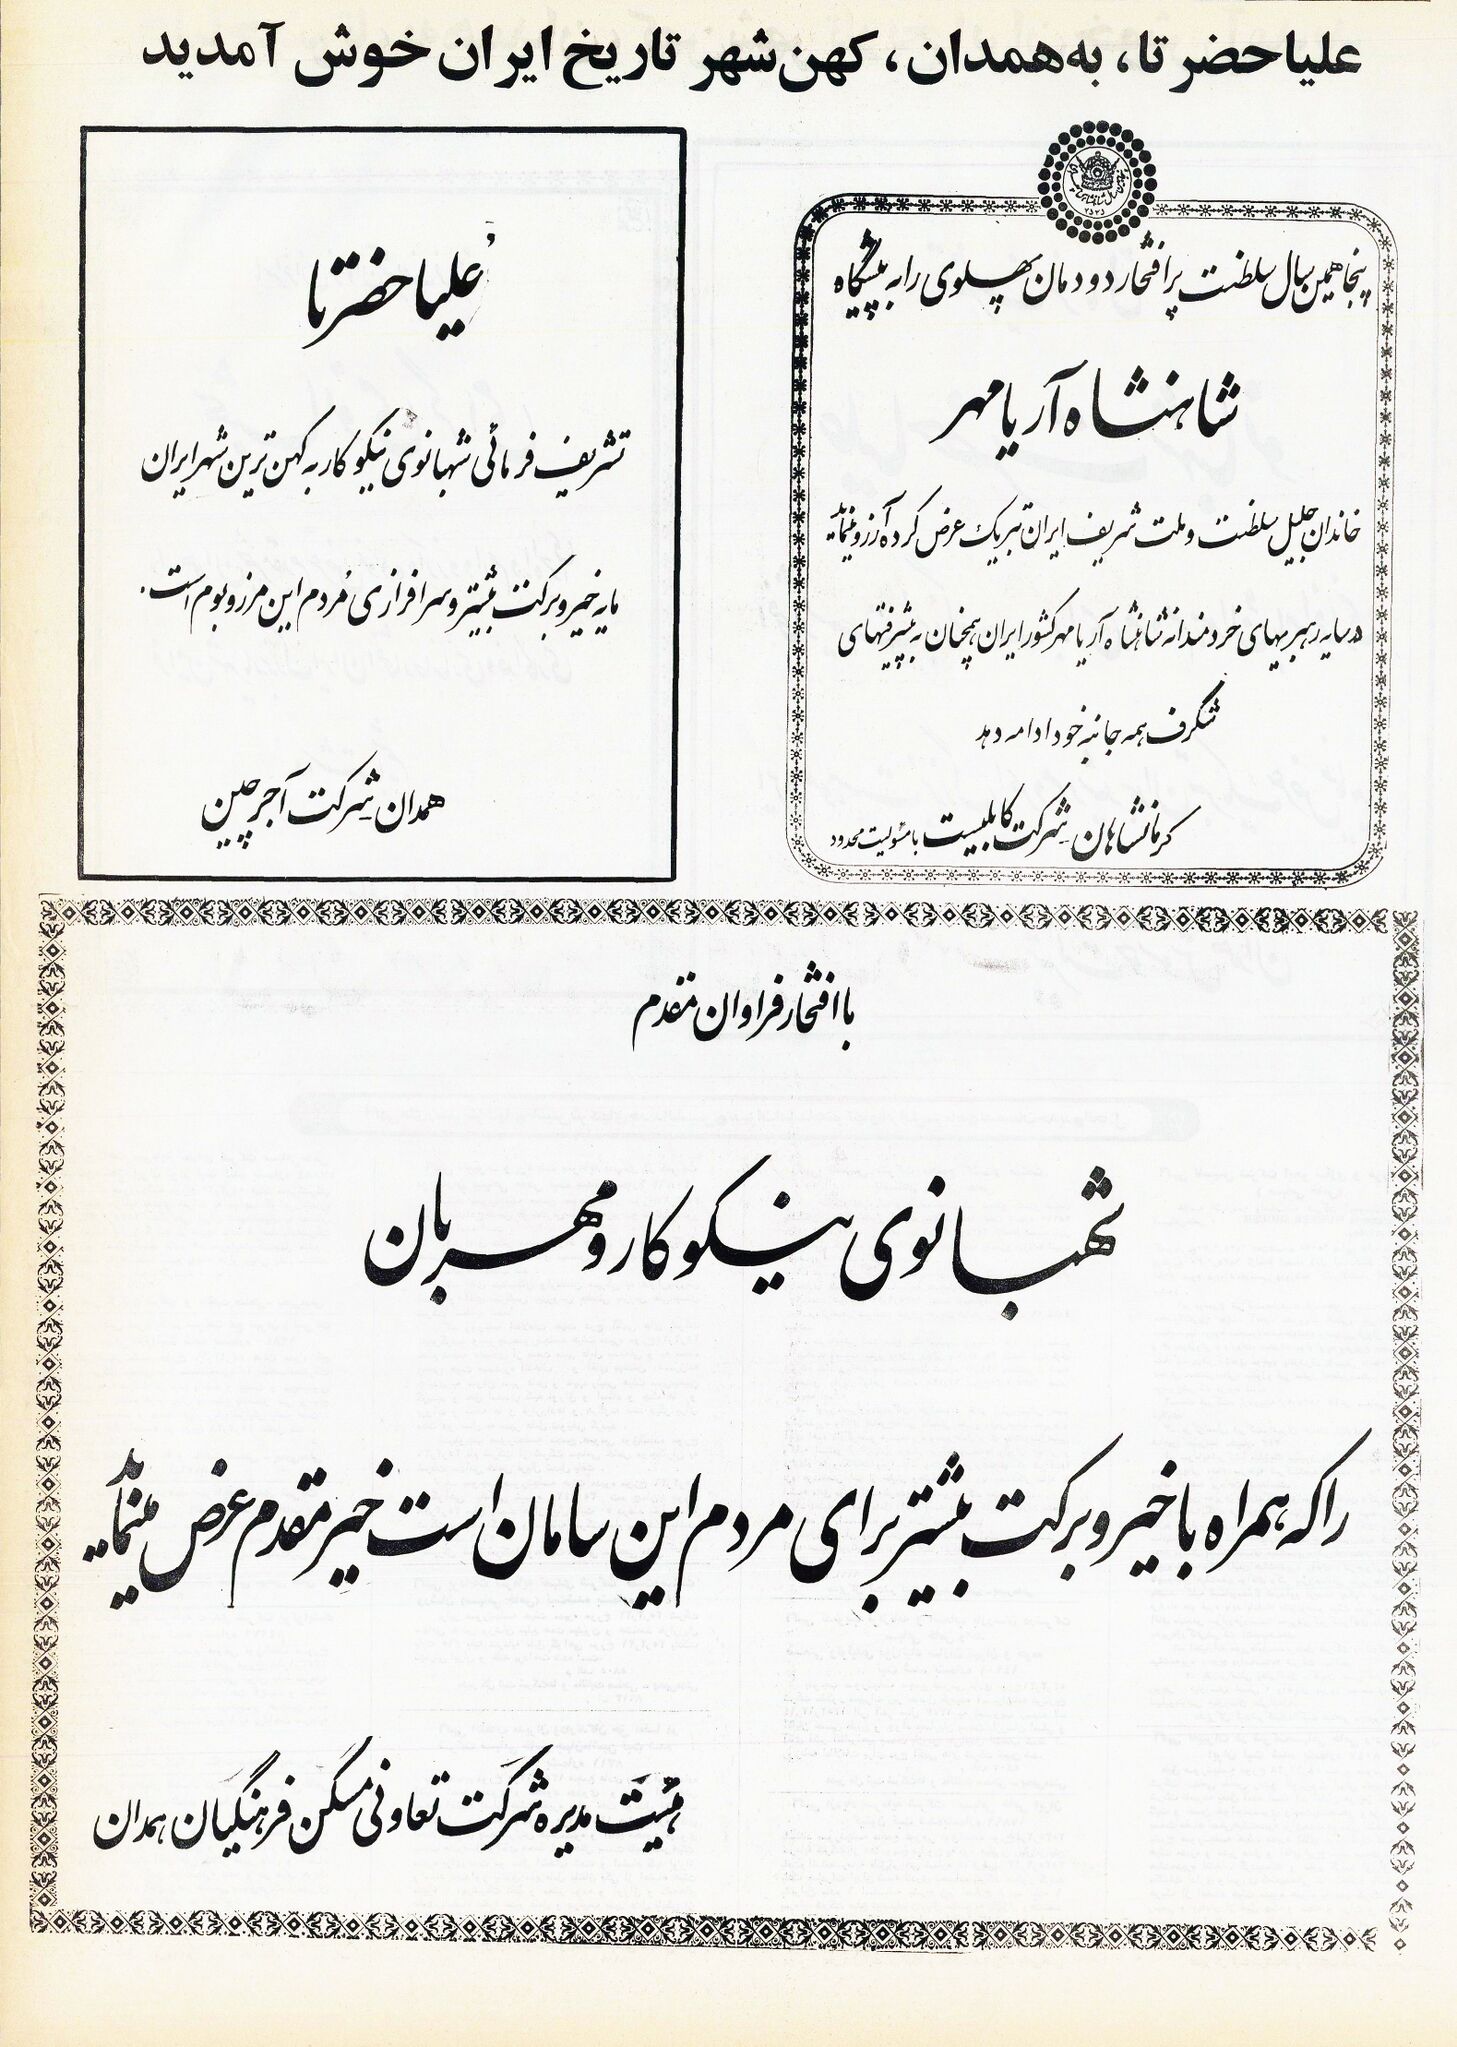 علیاحضرتا، به همدان، کهن شهر تاریخ ایران خوش آمدید
پنجاهمین سال سلطنت پرافتخار دودمان پهلوی را به پیشگاه
شاهنشاه آریامهر
خاندان جلیل سلطنت و ملت شریف ایران تبریک عرض کرده آرزو مینماید
در سایه رهبریهای خردمندانه شاهنشاه آریامهر کشور ایران همچنان به پیشرفتهای
شگرف همه جانبه خود ادامه دهد
کرمانشاهان - شرکت کابلبیست با مسئولیت محدود
علیاحضرتا
تشریف فرمائی شهبانوی نیکوکار به کهن ترین شهر ایران
مایه خیر و برکت بیشتر و سرافرازی مردم این مرز و بوم است.
همدان - شرکت آجرچین
با افتخار فراوان مقدم
شهبانوی نیکوکار و مهربان
را که همراه با خیر و برکت بیشتر برای مردم این سامان است خیر مقدم عرض مینماید
هیئت مدیره شرکت تعاونی مسکن فرهنگیان همدان